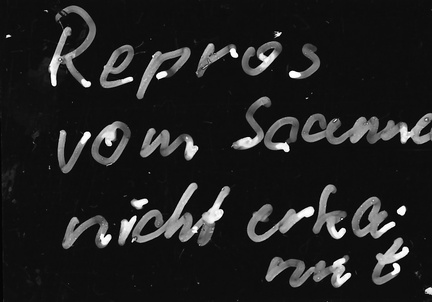 Repros
vom Scanne
nicht erka-
nnt